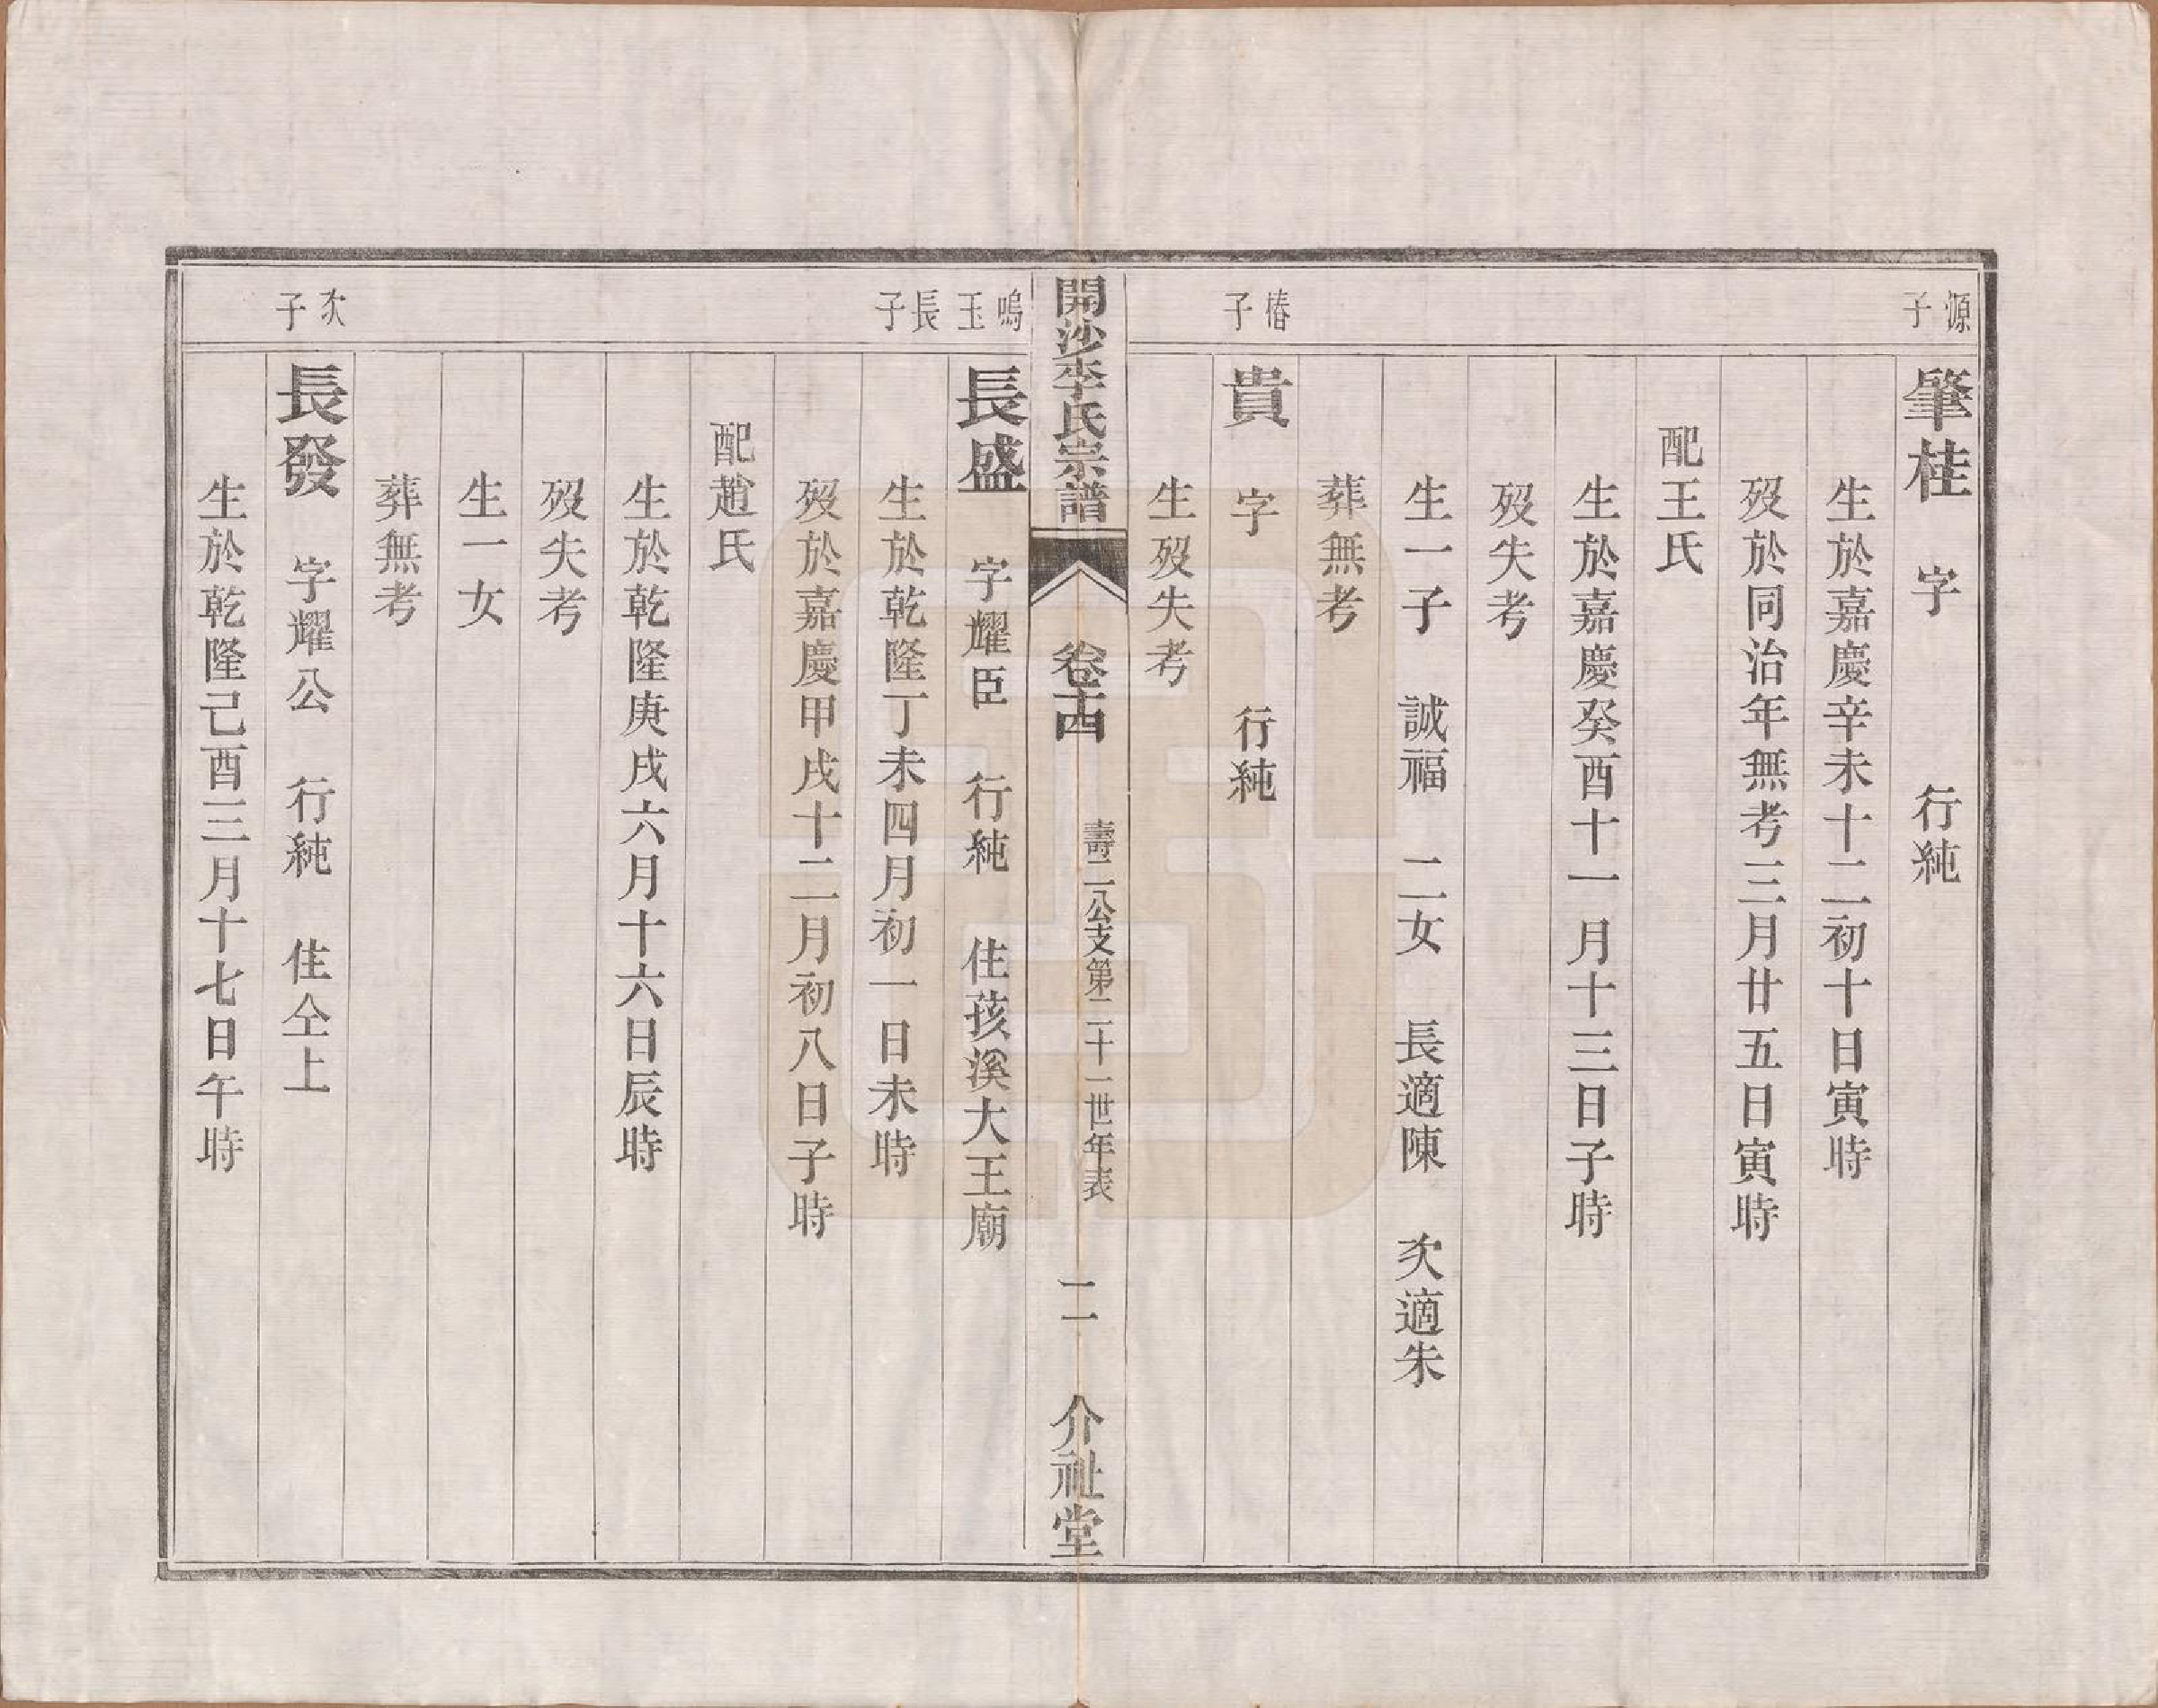 源子
肇桂 字 行純
生於嘉慶辛未十二初十日寅時
歿於同治年無考三月廿五日寅時
配王氏
生於嘉慶癸酉十一月十三日子時
歿失考
生一子 誠福 二女 長適陳 次適朱
葬無考
椿子
貴 字 行純
生歿失考
開沙李氏宗譜 卷十四 壽二公支第二十一世年表 二 介祉堂
鳴玉長子
長盛 字耀臣 行純 住孩溪大王廟
生於乾隆丁未四月初一日未時
歿於嘉慶甲戌十二月初八日子時
配趙氏
生於乾隆庚戌六月十六日辰時
歿失考
生一女
葬無考
次子
長發 字耀公 行純 住仝上
生於乾隆己酉三月十七日午時